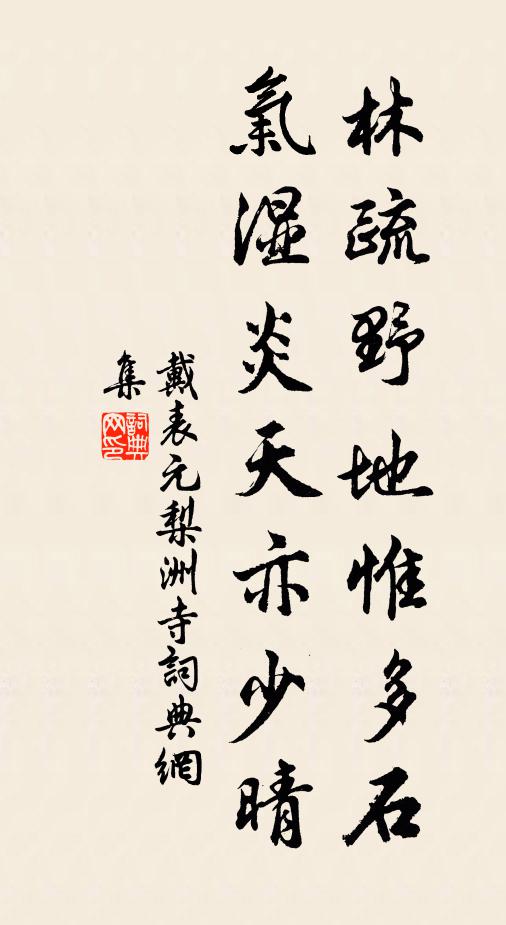 林疏野地惟多石
氣湿炎天亦少晴
戴表元梨洲寺詞典網
集
詞典
网印